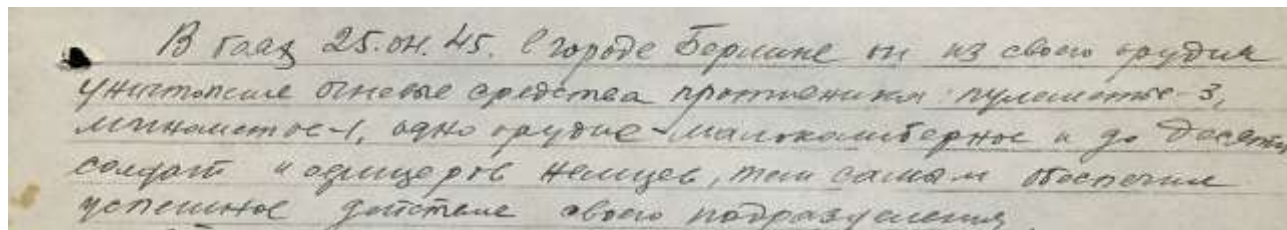 В боях 25.04.45. в городе Берлине он из своего орудия
уничтожил огневые средства противника: пулеметов-3,
минометов-1, одно орудие-малокалиберное и до десяти
солдат и офицеров немцев, тем самым обеспечил
успешное действие своего подразделения